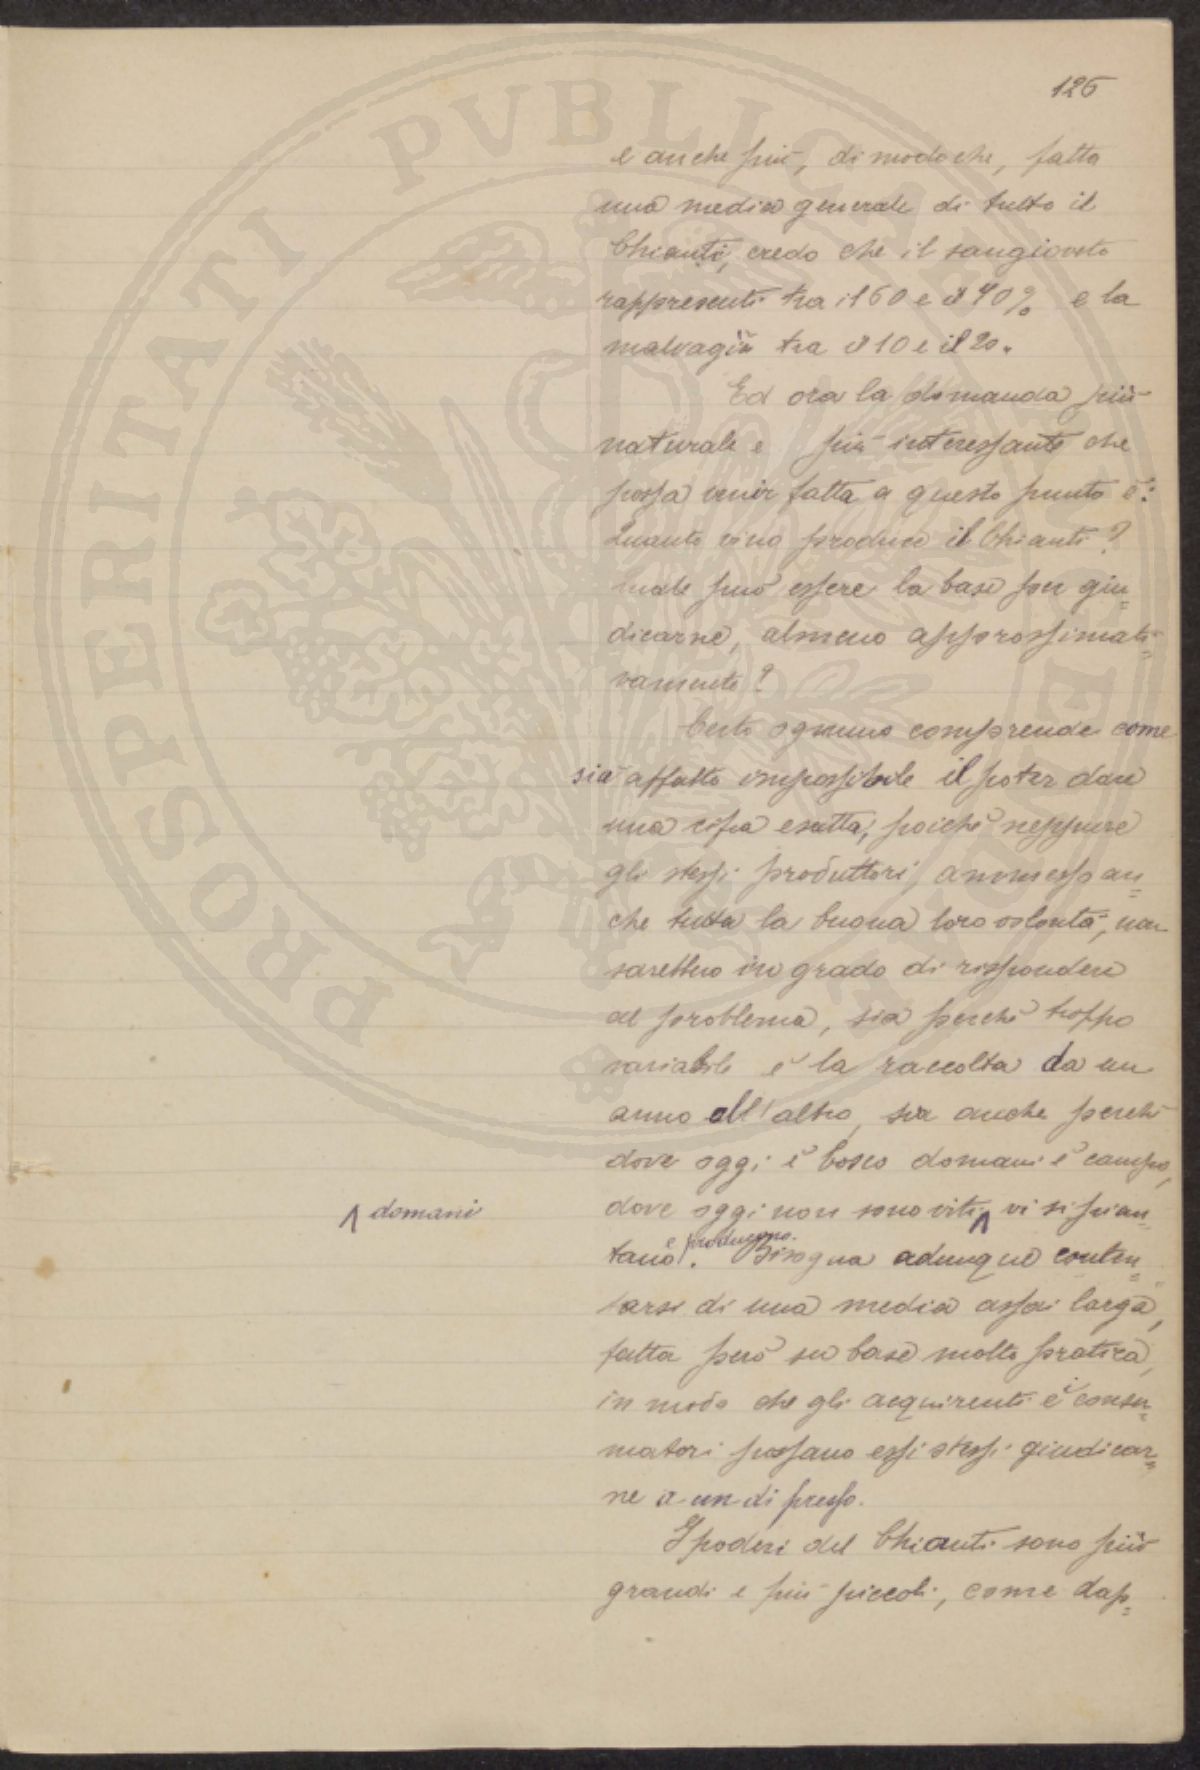 126
e anche più, di modo che, fatta
una media generale di tutto il
Chianti, credo che il sangioveto
rappresenti tra il 60 e il 70% e la
malvagia tra il 10 e il 20.
Ed ora la domanda più
naturale e più interessante che
possa venir fatta a questo punto è:
Quanto vino produce il Chianti?
Quale può essere la base per giu=
dicarne, almeno approssimati=
vamente?
Certo ognuno comprende come
sia affatto impossibile il poter dare
una cifra esatta, poichè neppure
gli stessi produttori, ammesso an=
che tutta la buona loro volontà, non
sarebbero in grado di rispondere
al problema, sia perchè troppo
variabile è la raccolta da un
anno all'altro, sia anche perchè
dove oggi è bosco domani è campo,
dove oggi non sono viti ʌ vi si pian=
ʌ domani
tano e producono. Bisogna adunque conten=
tarsi di una media assai larga,
fatta però su base molto pratica,
in modo che gli acquirenti e i consu=
matori possano essi stessi giudicar=
ne a un di presso.
I poderi del Chianti sono più
grandi e più piccoli, come dap=
PROSPERITATI PVBLICAE